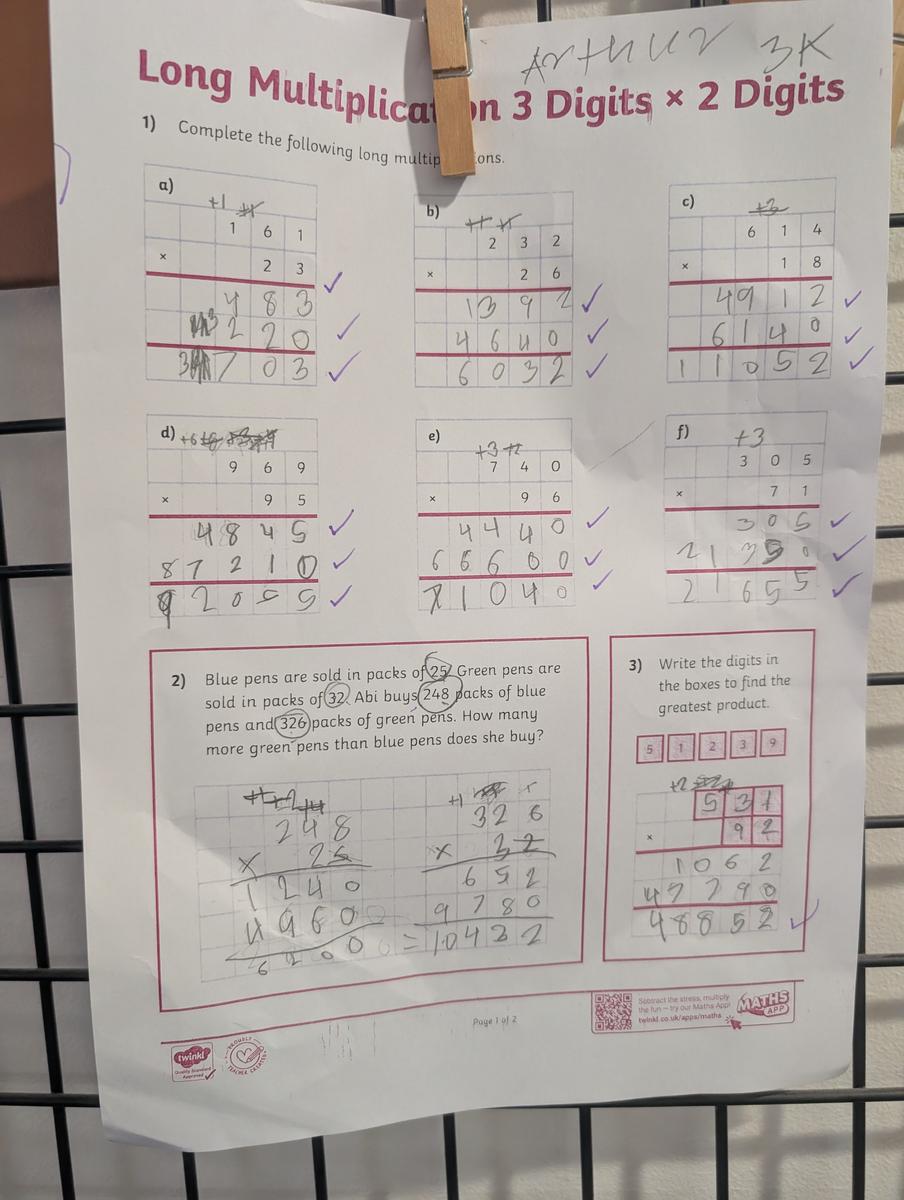 Arthur 3K
Long Multiplicat on 3 Digits × 2 Digits
1) Complete the following long multip ons.
a)
+1
1 6 1
× 2 3
4 8 3
3 2 2 0
3 7 0 3
b)
2 3 2
× 2 6
1 3 9 2
4 6 4 0
6 0 3 2
c)
+3
6 1 4
× 1 8
4 9 1 2
6 1 4 0
1 1 0 5 2
d) +6
9 6 9
× 9 5
4 8 4 5
8 7 2 1 0
9 2 0 5 5
e)
+3
7 4 0
× 9 6
4 4 4 0
6 6 6 0 0
7 1 0 4 0
f)
+3
3 0 5
× 7 1
3 0 5
2 1 3 5 0
2 1 6 5 5
2) Blue pens are sold in packs of 25. Green pens are
sold in packs of 32. Abi buys 248 packs of blue
pens and 326 packs of green pens. How many
more green pens than blue pens does she buy?
248
× 25
1 2 4 0
4 9 6 0
6 2 0 0
+1
3 2 6
× 3 2
6 5 2
9 7 8 0
= 10432
3) Write the digits in
the boxes to find the
greatest product.
5 1 2 3 9
+2
5 3 1
× 9 2
1 0 6 2
4 7 7 9 0
4 8 8 5 2
Page 1 of 2
Subtract the stress, multiply
the fun – try our Maths App!
twinkl.co.uk/apps/maths
MATHS
APP
twinkl
Quality Standard
Approved
PROUDLY
TEACHER CREATED